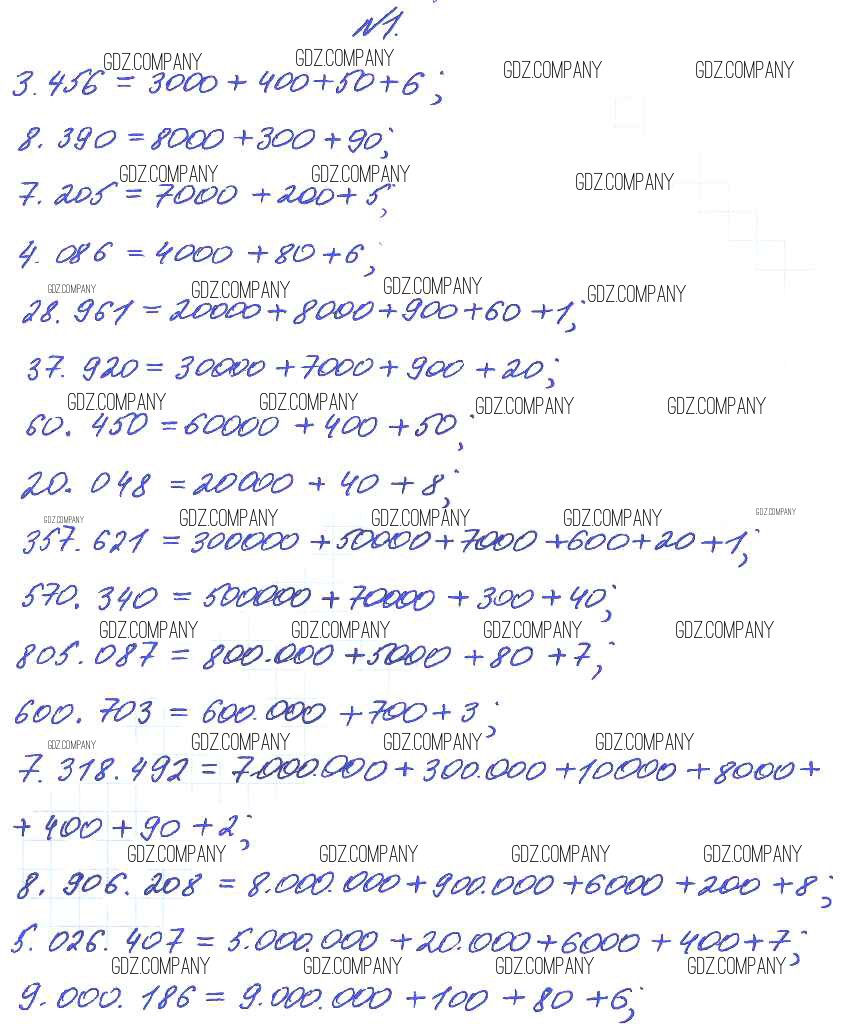 №1.
GDZ.COMPANY GDZ.COMPANY GDZ.COMPANY GDZ.COMPANY
3.456 = 3000 + 400+50+6;
8.390 = 8000 +300 +90;
GDZ.COMPANY GDZ.COMPANY GDZ.COMPANY
7.205 = 7000 +200+ 5;
4.086 = 4000 +80+6;
GDZ.COMPANY GDZ.COMPANY GDZ.COMPANY GDZ.COMPANY
28.961 = 20000+8000+900+60+1;
37.920 = 30000+7000+900+20;
GDZ.COMPANY GDZ.COMPANY GDZ.COMPANY GDZ.COMPANY
60.450 = 60000 +400+50;
20.048 = 20000 + 40 + 8;
GDZ.COMPANY GDZ.COMPANY GDZ.COMPANY GDZ.COMPANY GDZ.COMPANY
357.621 = 300000 +50000+7000+600+20+1;
570.340 = 500000 +70000 +300+40;
GDZ.COMPANY GDZ.COMPANY GDZ.COMPANY GDZ.COMPANY
805.087 = 800.000 +5000 +80 +7;
600.703 = 600.000 +700+3;
GDZ.COMPANY GDZ.COMPANY GDZ.COMPANY GDZ.COMPANY
7.318.492 = 7.000.000+300.000+10000+8000+
+400+90+2;
GDZ.COMPANY GDZ.COMPANY GDZ.COMPANY GDZ.COMPANY
8.906.208 = 8.000.000+900.000+6000+200+8;
5.026.407 = 5.000.000+20.000+6000+400+7;
GDZ.COMPANY GDZ.COMPANY GDZ.COMPANY GDZ.COMPANY
9.000.186 = 9.000.000 +100 +80 +6;